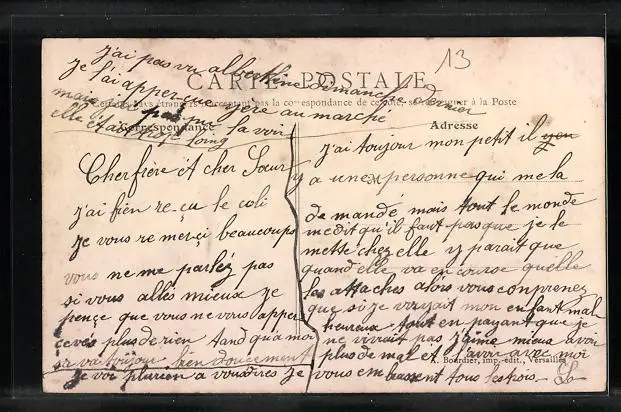 13
j'ai pas vu albertine dimanche dernier
Je l'ai apperçue gère au marché
mais pas pu la voir
elle était trop loing
CARTE POSTALE
pas la correspondance à la Poste
Correspondance
Adresse
Cher frère et cher Sœur
j'ai bien re-çu le coli
Je vous remerci beaucoups
vous ne me parléz pas
si vous allés mieux Je
pençe que vous ne vous apper
çevés plus de rien tand qu'a moi
sa va toujour bien doucement
Je voi plu rien a vous dires Je
j'ai toujour mon petit il
y a une personne qui me la
de mandé mais tout le monde
me dit qu'il faut pas que je le
mette chez elle y parait que
quand elle va en course quelle
les attaches alors vous comprenez
que si je voyait mon enfant mal
heureux tout en payant que je
ne vivrait pas j'aime mieux avoir
plus de mal et l'avoir avec moi
A. Bourdier, imp.-édit., Versailles
vous embrassent tous les trois